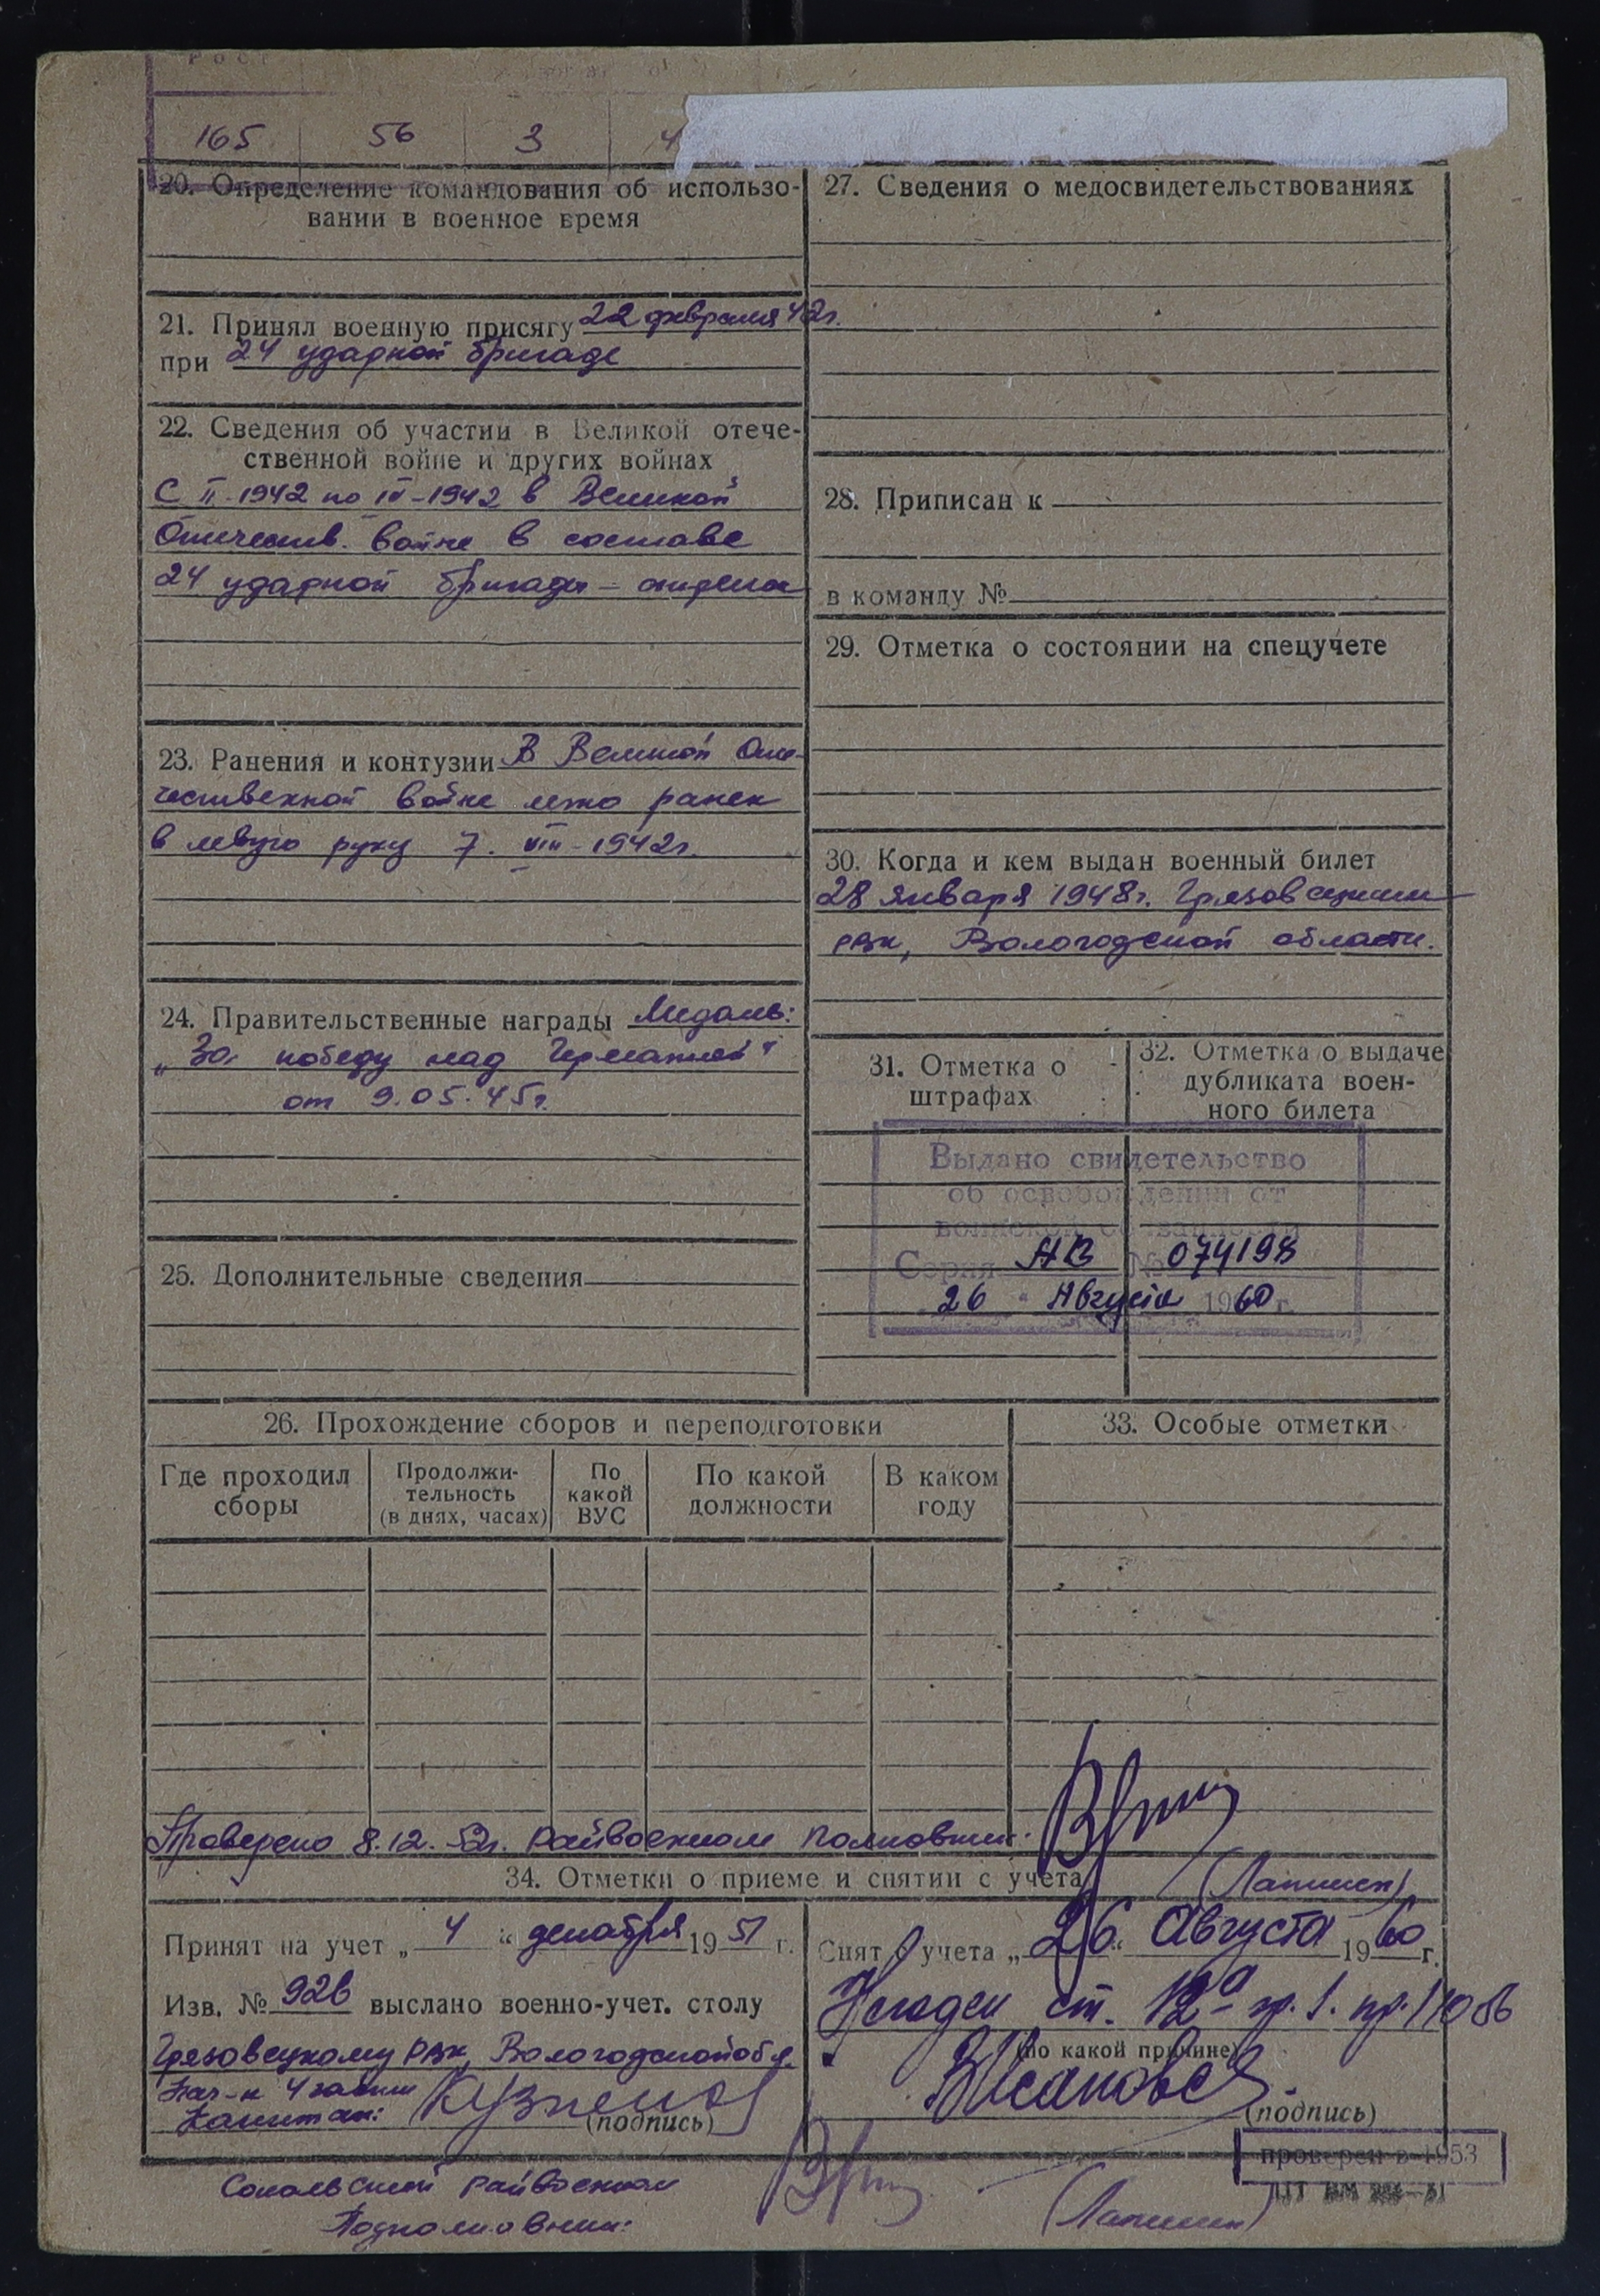 Рост
165 56 3 4
20. Определение командования об использо-
вании в военное время
21. Принял военную присягу 22 февраля 42г.
при 24 ударной бригаде
22. Сведения об участии в Великой отече-
ственной войне и других войнах
С II-1942 по IV-1942 в Великой
Отечеств. войне в составе
24 ударной бригады -
23. Ранения и контузии В Великой Оте-
чественной войне легко ранен
в левую руку 7. VIII-1942г.
24. Правительственные награды Медаль:
„За победу над Германией"
от 9.05.45г.
25. Дополнительные сведения
27. Сведения о медосвидетельствованиях
28. Приписан к
в команду №
29. Отметка о состоянии на спецучете
30. Когда и кем выдан военный билет
28 января 1948г. Грязовецким
рвк, Вологодской области.
31. Отметка о
штрафах
32. Отметка о выдаче
дубликата воен-
ного билета
Выдано свидетельство
об освобождении от
воинской обязанности
Серия АВ № 074198
26 " Августа 1960 г.
26. Прохождение сборов и переподготовки
Где проходил
сборы
Продолжи-
тельность
(в днях, часах)
По
какой
ВУС
По какой
должности
В каком
году
33. Особые отметки
Проверено 8.12.52г. Райвоенком полковник.
34. Отметки о приеме и снятии с учета
(Лапшин)
Принят на учет „ 4 " декабря 1951 г.
Изв. № 926 выслано военно-учет. столу
Грязовецкому рвк, Вологодской обл.
Нач-к 4 части
Капитан: Кузнецов
(подпись)
Снят с учета „ 26 " Августа 1960 г.
Негоден ст. 12а гр. 1. пр. 110 56
(по какой причине)
(подпись)
проверен в 1953
Сокольский райвоенком
Подполковник:
(Лапшин)